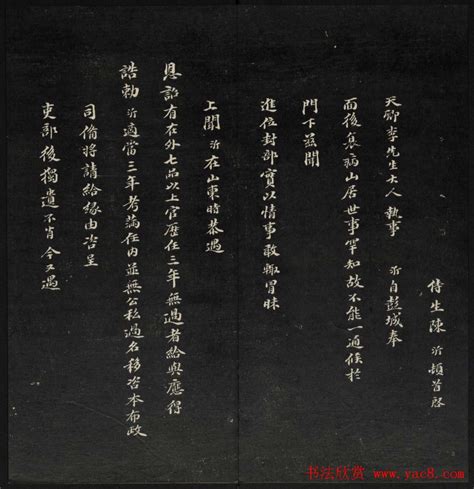 侍生陳沂頓首啓
天卿李先生大人 執事 沂自彭城奉
而後衰病山居世事罕知故不能一通候於
門下茲聞
進位封部實以情事敢輒冒昧
上聞沂在山東時恭遇
恩詔有在外七品以上官歷任三年無過者給與應得
誥勅沂適當三年考滿任內並無公私過名移咨本布政
司備將請給緣由咨呈
吏部後獨遺不肖今又遇
书法欣赏 www.yac8.com